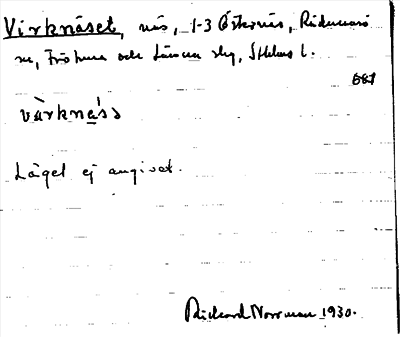 Virknäset, näs, 1-3 Östernäs, Rådmansö
sn, Fröhuna och Länna slg, Sthlms l.
681
vàrknä́ss
Läget ej angivet.
Rickard Norrman 1930.